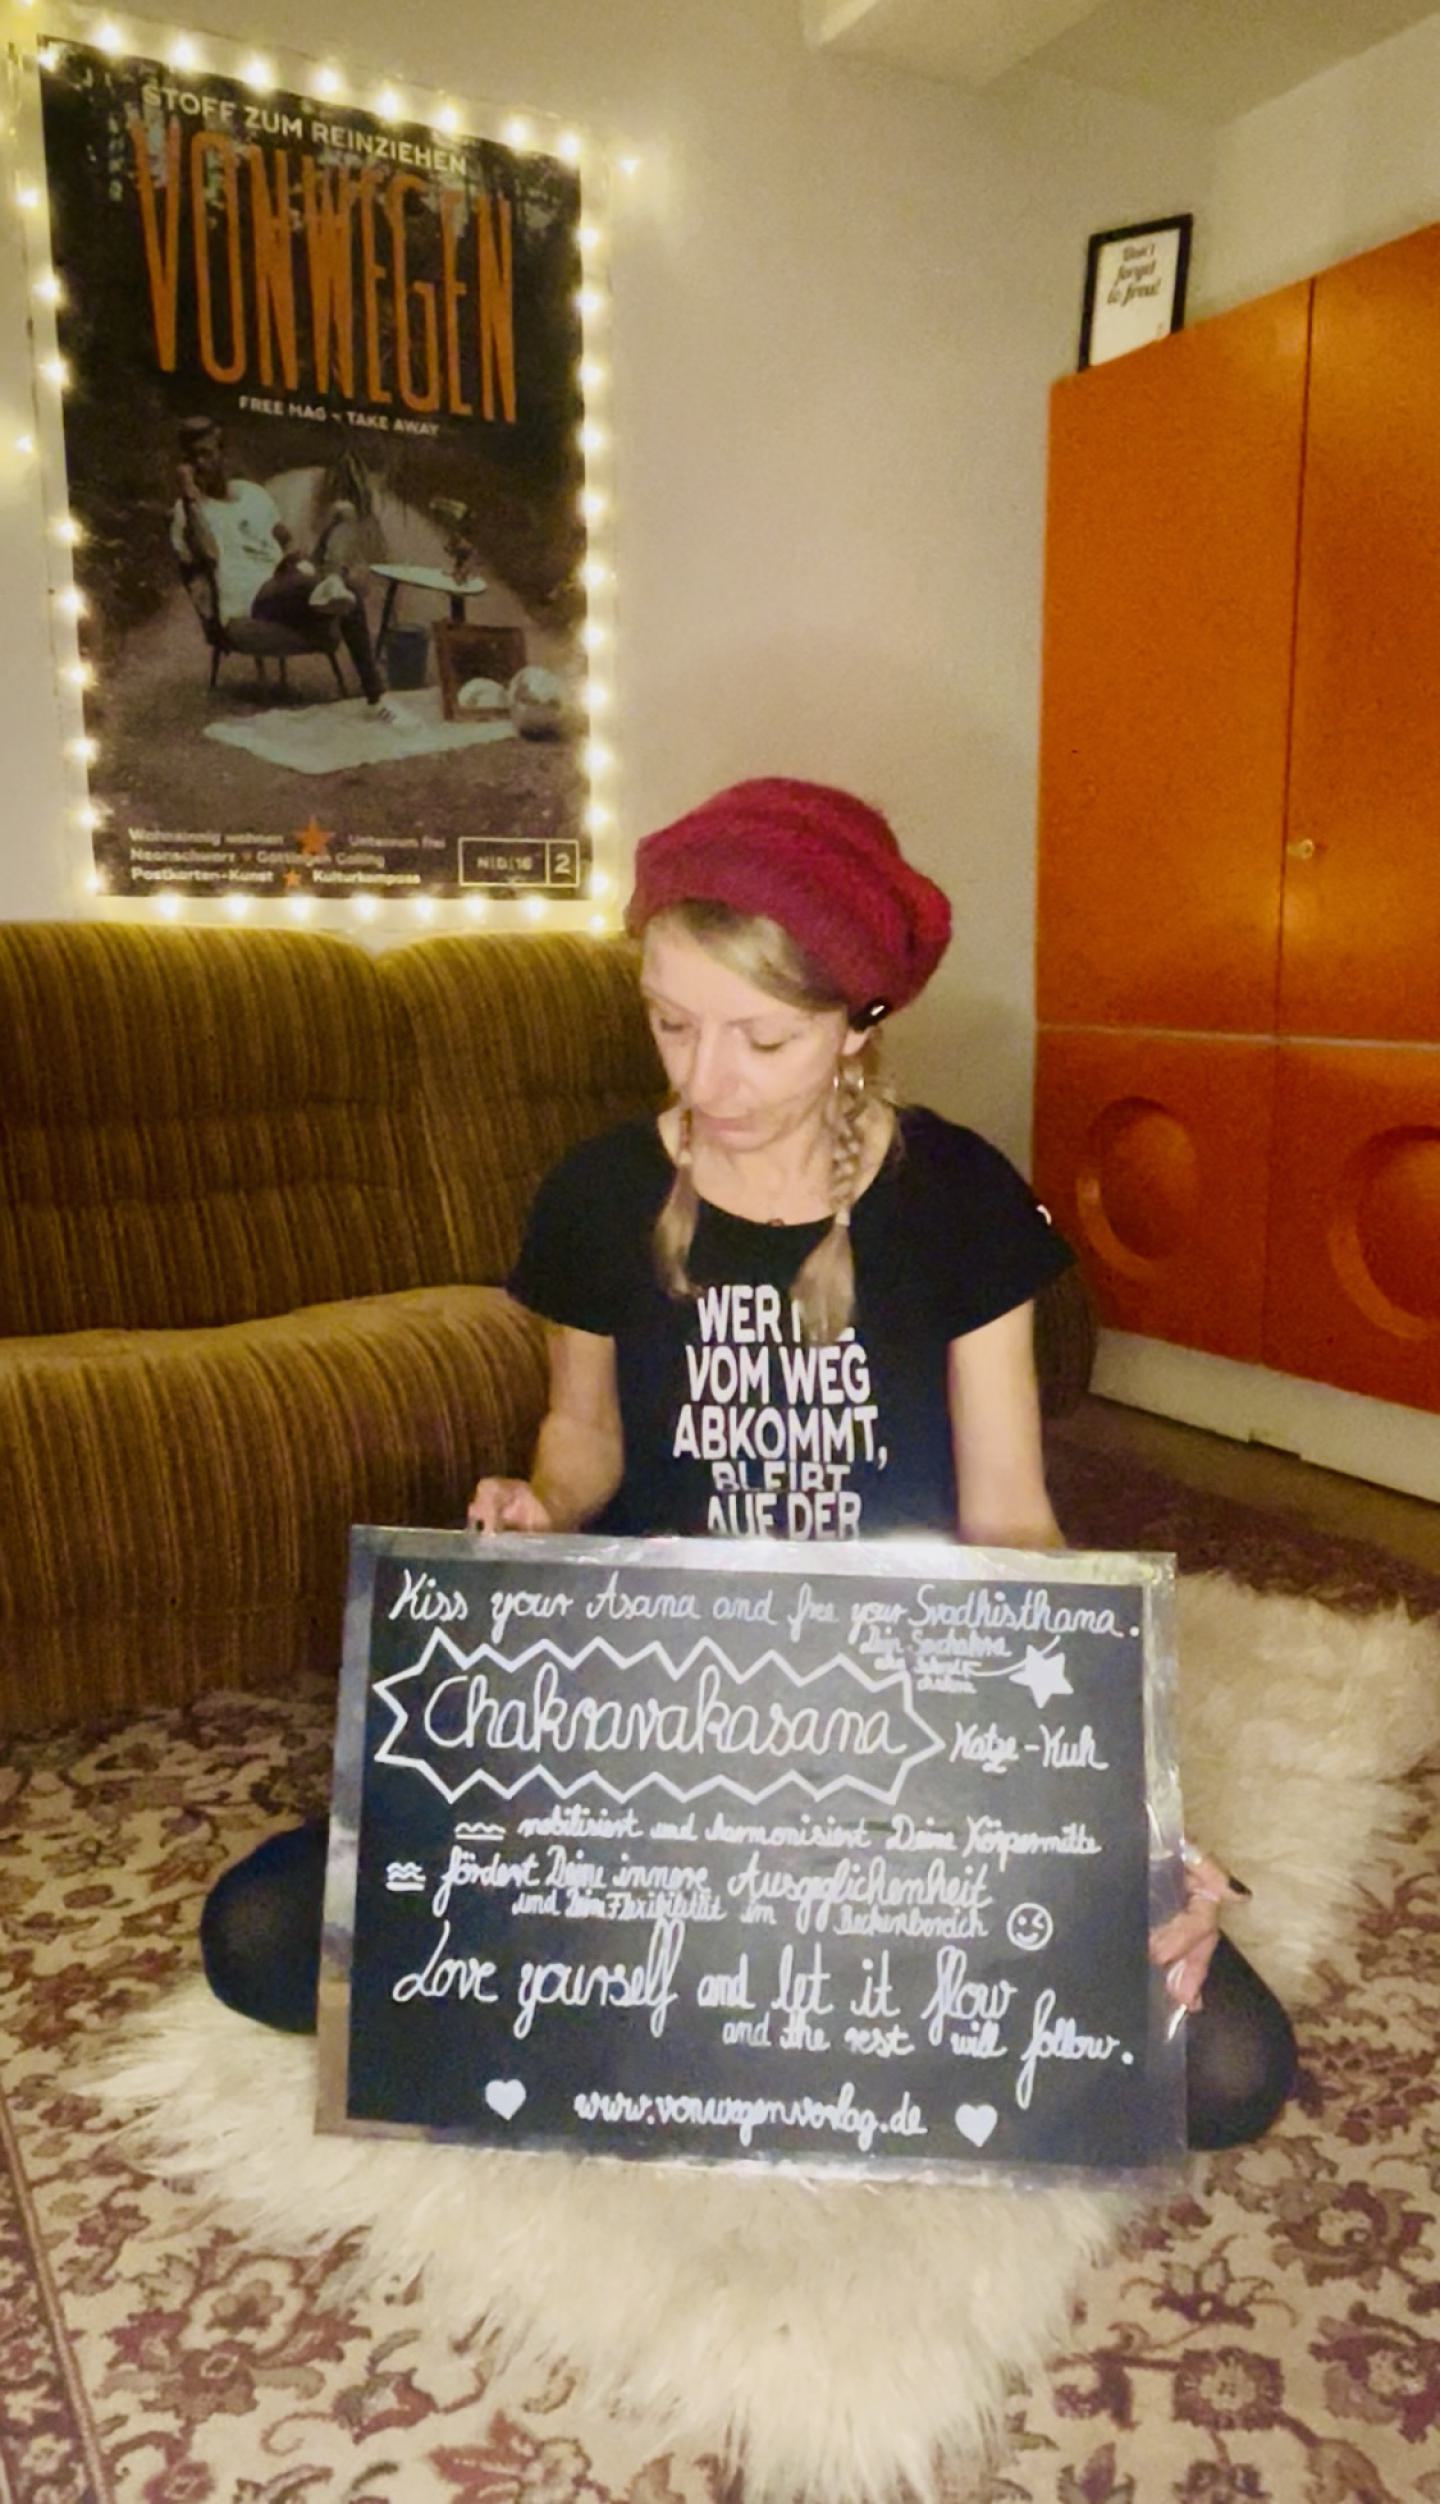 STOFF ZUM REINZIEHEN
VONWEGEN
FREE MAG ~ TAKE AWAY
Wohnsinnig wohnen ★ Unterwom frei
Neonschwarz ★ Göttingen Calling
Postkarten-Kunst ★ Kulturkompass
2
Don't
forget
to
WER
VOM WEG
ABKOMMT,
BLEIBT
AUF DER
Kiss your Asana and free your Svadhisthana.
Dein
Chakravakasana
Katze-Kuh
mobilisiert und harmonisiert Deine Körpermitte
fördert Deine innere Ausgeglichenheit
und Deine Flexibilität im Beckenbereich
Love yourself and let it flow
and the rest will follow.
www.vonwegenverlag.de